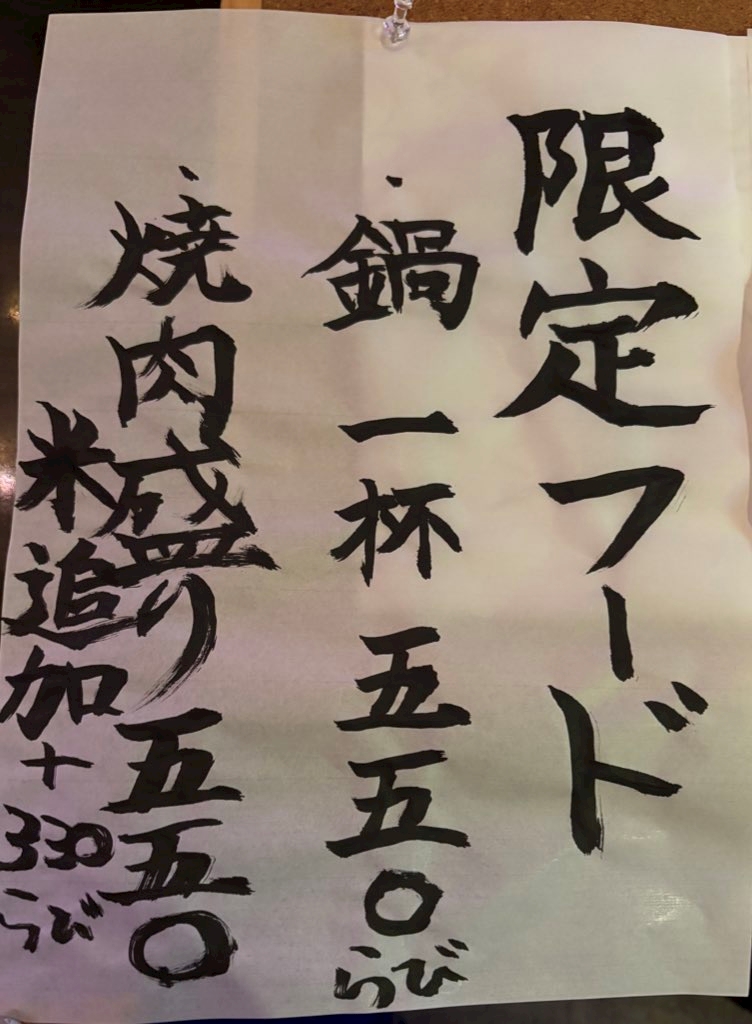 限定フード
・鍋一杯五五〇らび
・焼肉盛り五五〇
米追加+330らび